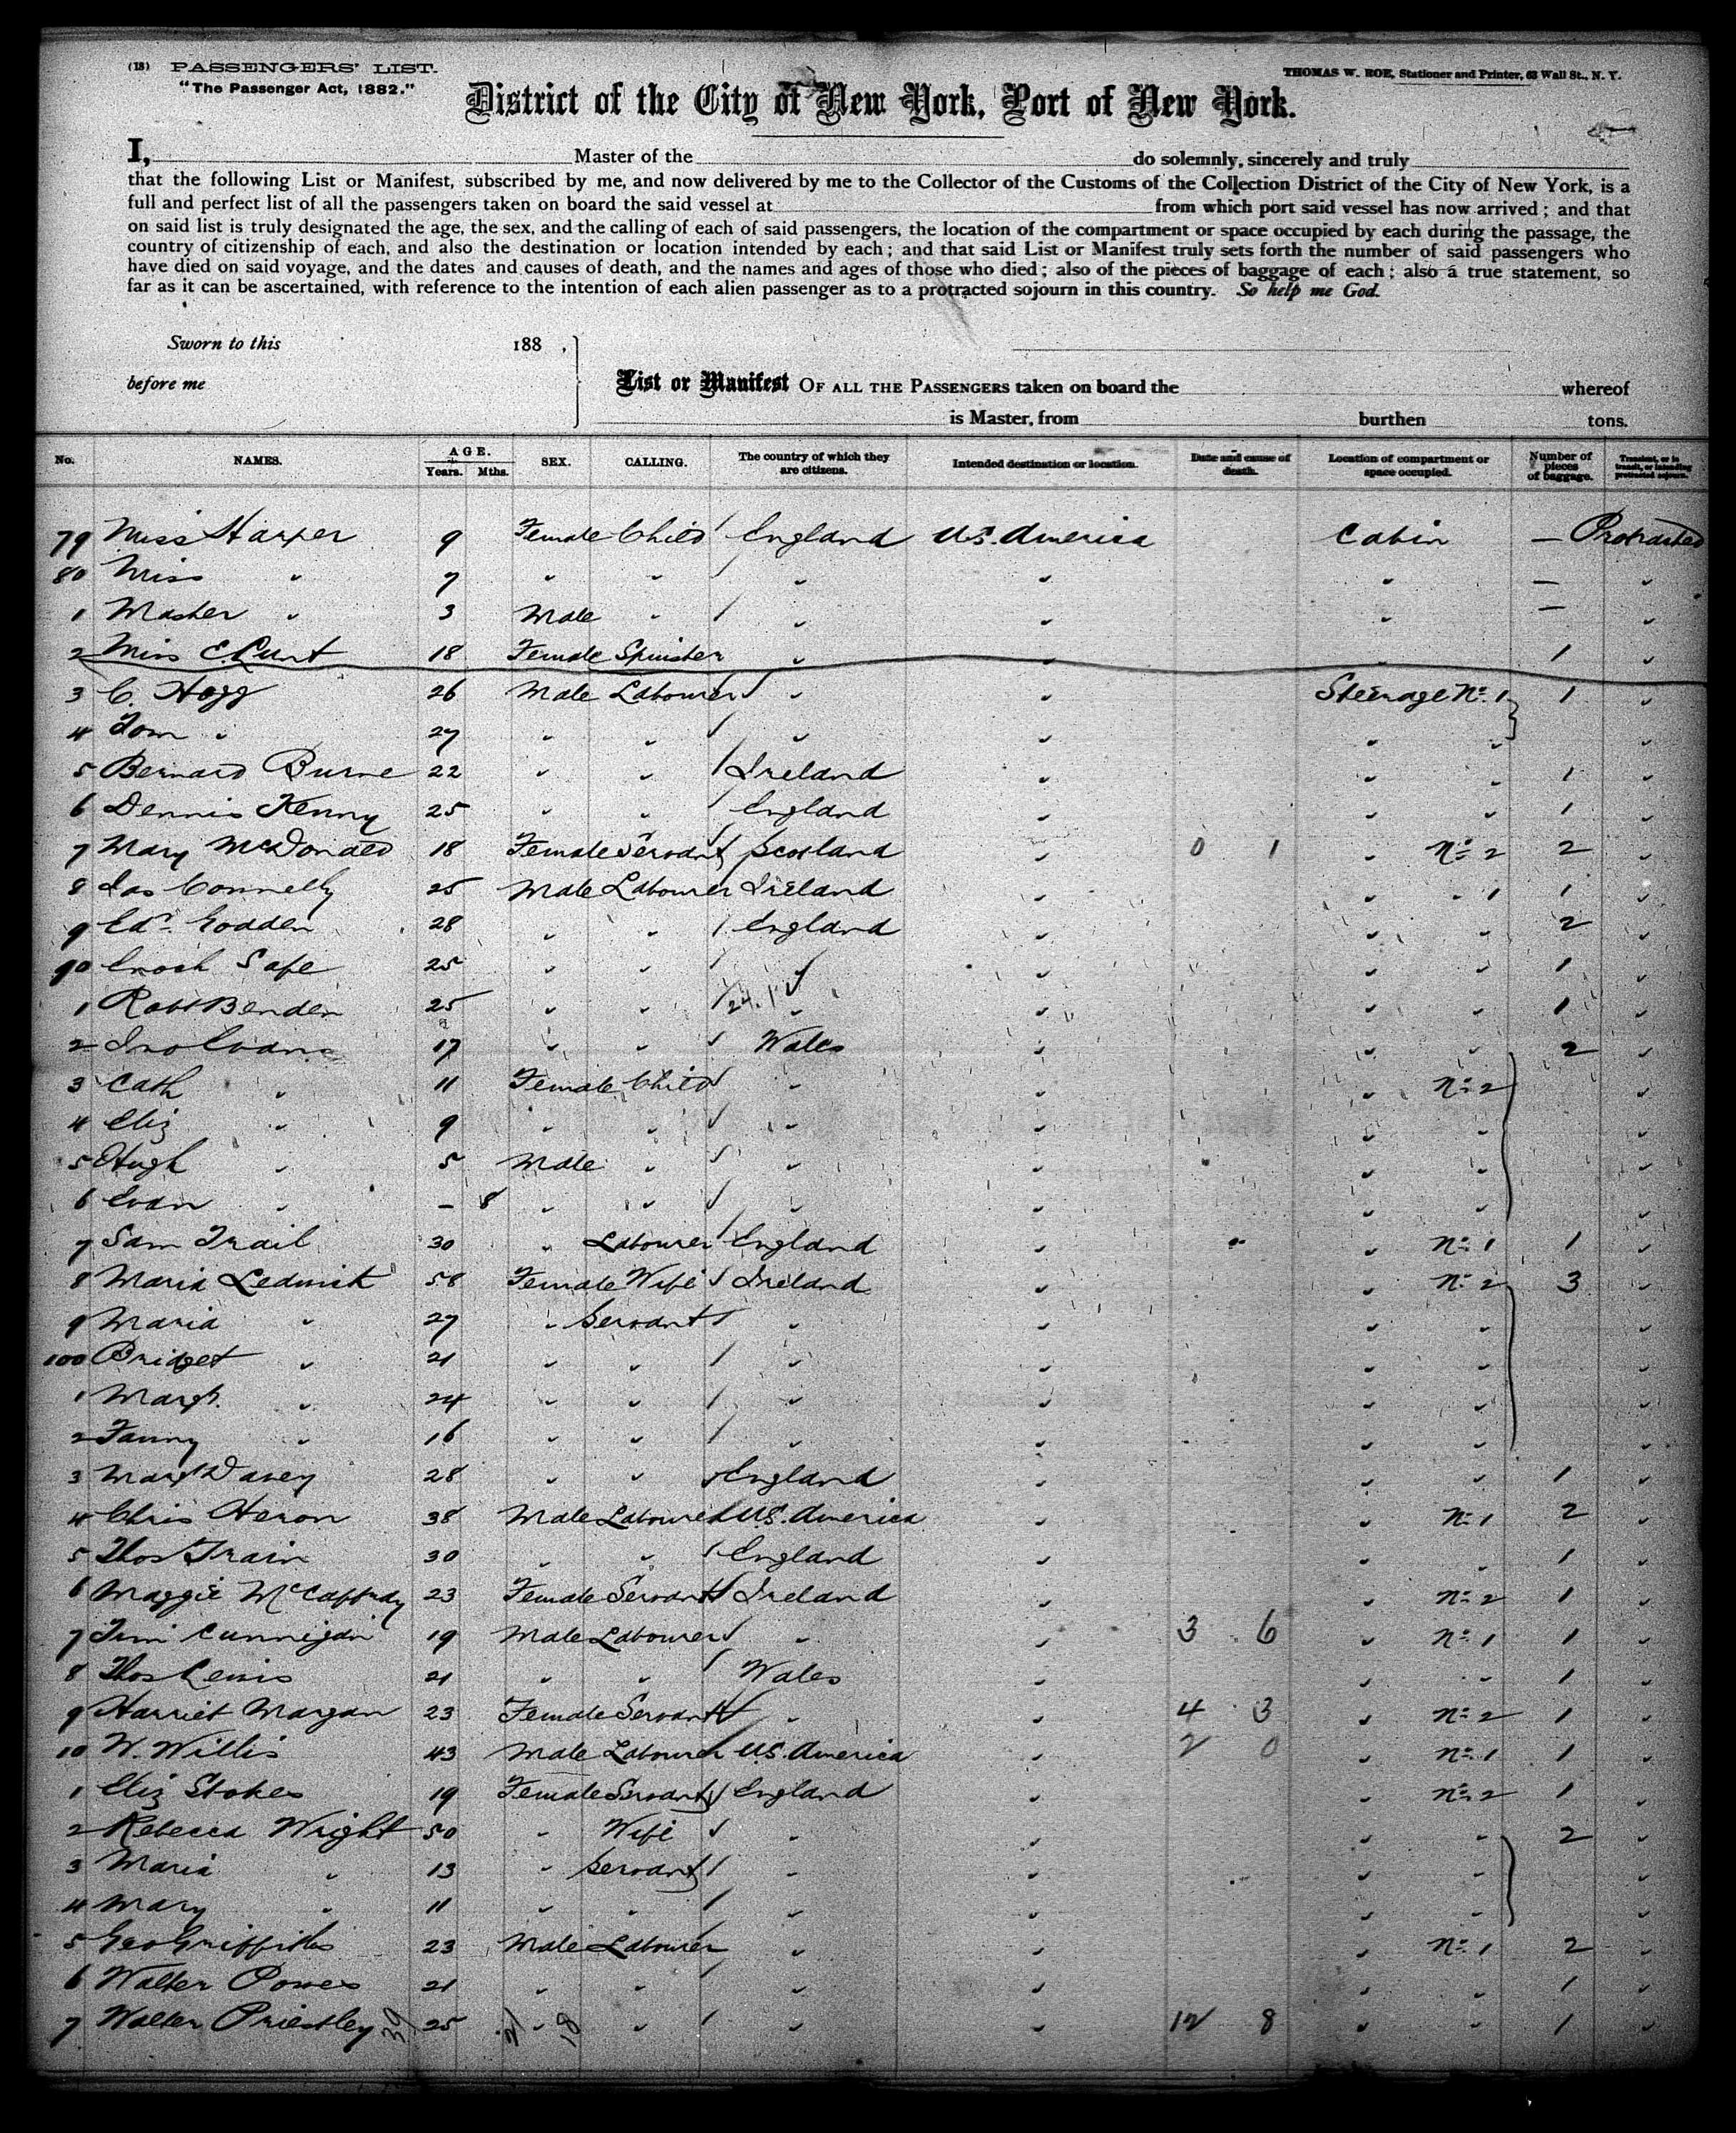 (18) PASSENGERS' LIST. THOMAS W. ROE, Stationer and Printer, 63 Wall St., N. Y.
"The Passenger Act, 1882."
District of the City of New York, Port of New York.
I, Master of the do solemnly, sincerely and truly
that the following List or Manifest, subscribed by me, and now delivered by me to the Collector of the Customs of the Collection District of the City of New York, is a
full and perfect list of all the passengers taken on board the said vessel at from which port said vessel has now arrived; and that
on said list is truly designated the age, the sex, and the calling of each of said passengers, the location of the compartment or space occupied by each during the passage, the
country of citizenship of each, and also the destination or location intended by each; and that said List or Manifest truly sets forth the number of said passengers who
have died on said voyage, and the dates and causes of death, and the names and ages of those who died; also of the pieces of baggage of each; also a true statement, so
far as it can be ascertained, with reference to the intention of each alien passenger as to a protracted sojourn in this country. So help me God.
Sworn to this 188 ,
before me
List or Manifest OF ALL THE PASSENGERS taken on board the whereof
is Master, from burthen tons.
No. NAMES. AGE. Years. Mths. SEX. CALLING. The country of which they are citizens. Intended destination or location. Date and cause of death. Location of compartment or space occupied. Number of pieces of baggage. Transient, or in transit, or intending protracted sojourn.
79 Miss Harper 9 Female Child England U.S. America Cabin — Protracted
80 Miss " 7 " " " " " — "
1 Master " 3 Male " " " " — "
2 Miss E. 18 Female Spinster " " " 1 "
3 C. Hogg 26 Male Labourer " " Steerage No. 1 1 "
4 Tom " 27 " " " " " " "
5 Bernard Burne 22 " " Ireland " " 1 "
6 Dennis Kenny 25 " " England " " " 1 "
7 Mary McDonald 18 Female Servant Scotland " 0 1 " No. 2 2 "
8 Jas Connelly 25 Male Labourer Ireland " " " 1 1 "
9 Edr. Godden 28 " " England " " " 2 "
90 Enoch Safe 25 " " " " " 1 "
1 Robt Bender 25 " " 24. 1 " " " " 1 "
2 Jno Evans 17 " " Wales " " " 2 "
3 Cath " 11 Female Child " " " No. 2 "
4 Eliz " 9 " " " " " " "
5 Hugh " 5 Male " " " " " "
6 Evan " — 8 " " " " " " "
7 Sam Trail 30 " Labourer England " " No. 1 1 "
8 Maria Ledwith 58 Female Wife Ireland " " No. 2 3 "
9 Maria " 27 " Servant " " " " "
100 Bridget " 21 " " " " " " "
1 Margt. " 24 " " " " " " "
2 Fanny " 16 " " " " " " "
3 Margt Davey 28 " " England " " " 1 "
4 Chris Heron 38 Male Labourer U.S. America " " No. 1 2 "
5 Thos Train 30 " " England " " " 1 "
6 Maggie McCaffrey 23 Female Servant Ireland " " No. 2 1 "
7 Jim Cunnigan 19 Male Labourer " " 3 6 " No. 1 1 "
8 Thos Lewis 21 " " Wales " " " 1 "
9 Harriet Morgan 23 Female Servant " " 4 3 " No. 2 1 "
10 W. Willis 43 Male Labourer U.S. America " 2 0 " No. 1 1 "
1 Eliz Stokes 19 Female Servant England " " No. 2 1 "
2 Rebecca Wright 50 " Wife " " " " 2 "
3 Maria " 13 " Servant " " " " "
4 Mary " 11 " " " " " " "
5 Geo Griffiths 23 Male Labourer " " " No. 1 2 "
6 Walter Powes 21 " " " " " 1 "
7 Walter Priestley 39 25 21 " 18 " " " 12 8 " " 1 "